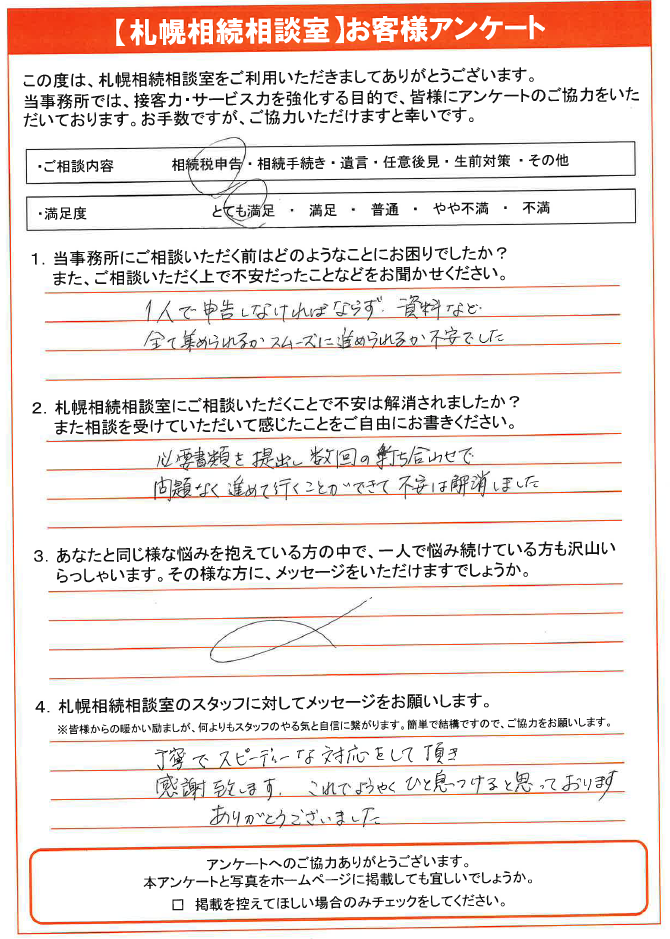 【札幌相続相談室】お客様アンケート
この度は、札幌相続相談室をご利用いただきましてありがとうございます。
当事務所では、接客力・サービス力を強化する目的で、皆様にアンケートのご協力をいた
だいております。お手数ですが、ご協力いただけますと幸いです。
・ご相談内容 相続税申告・相続手続き・遺言・任意後見・生前対策・その他
・満足度 とても満足 ・ 満足 ・ 普通 ・ やや不満 ・ 不満
1．当事務所にご相談いただく前はどのようなことにお困りでしたか？
また、ご相談いただく上で不安だったことなどをお聞かせください。
1人で申告しなければならず、資料など
全て集められるかスムーズに進められるか不安でした
2．札幌相続相談室にご相談いただくことで不安は解消されましたか？
また相談を受けていただいて感じたことをご自由にお書きください。
必要書類を提出し数回の打ち合わせで
問題なく進めて行くことができて不安は解消しました
3．あなたと同じ様な悩みを抱えている方の中で、一人で悩み続けている方も沢山い
らっしゃいます。その様な方に、メッセージをいただけますでしょうか。
4．札幌相続相談室のスタッフに対してメッセージをお願いします。
※皆様からの暖かい励ましが、何よりもスタッフのやる気と自信に繋がります。簡単で結構ですので、ご協力をお願いします。
丁寧でスピーディーな対応をして頂き
感謝致します。これでようやくひと息つけると思っております
ありがとうございました
アンケートへのご協力ありがとうございます。
本アンケートと写真をホームページに掲載しても宜しいでしょうか。
□ 掲載を控えてほしい場合のみチェックをしてください。